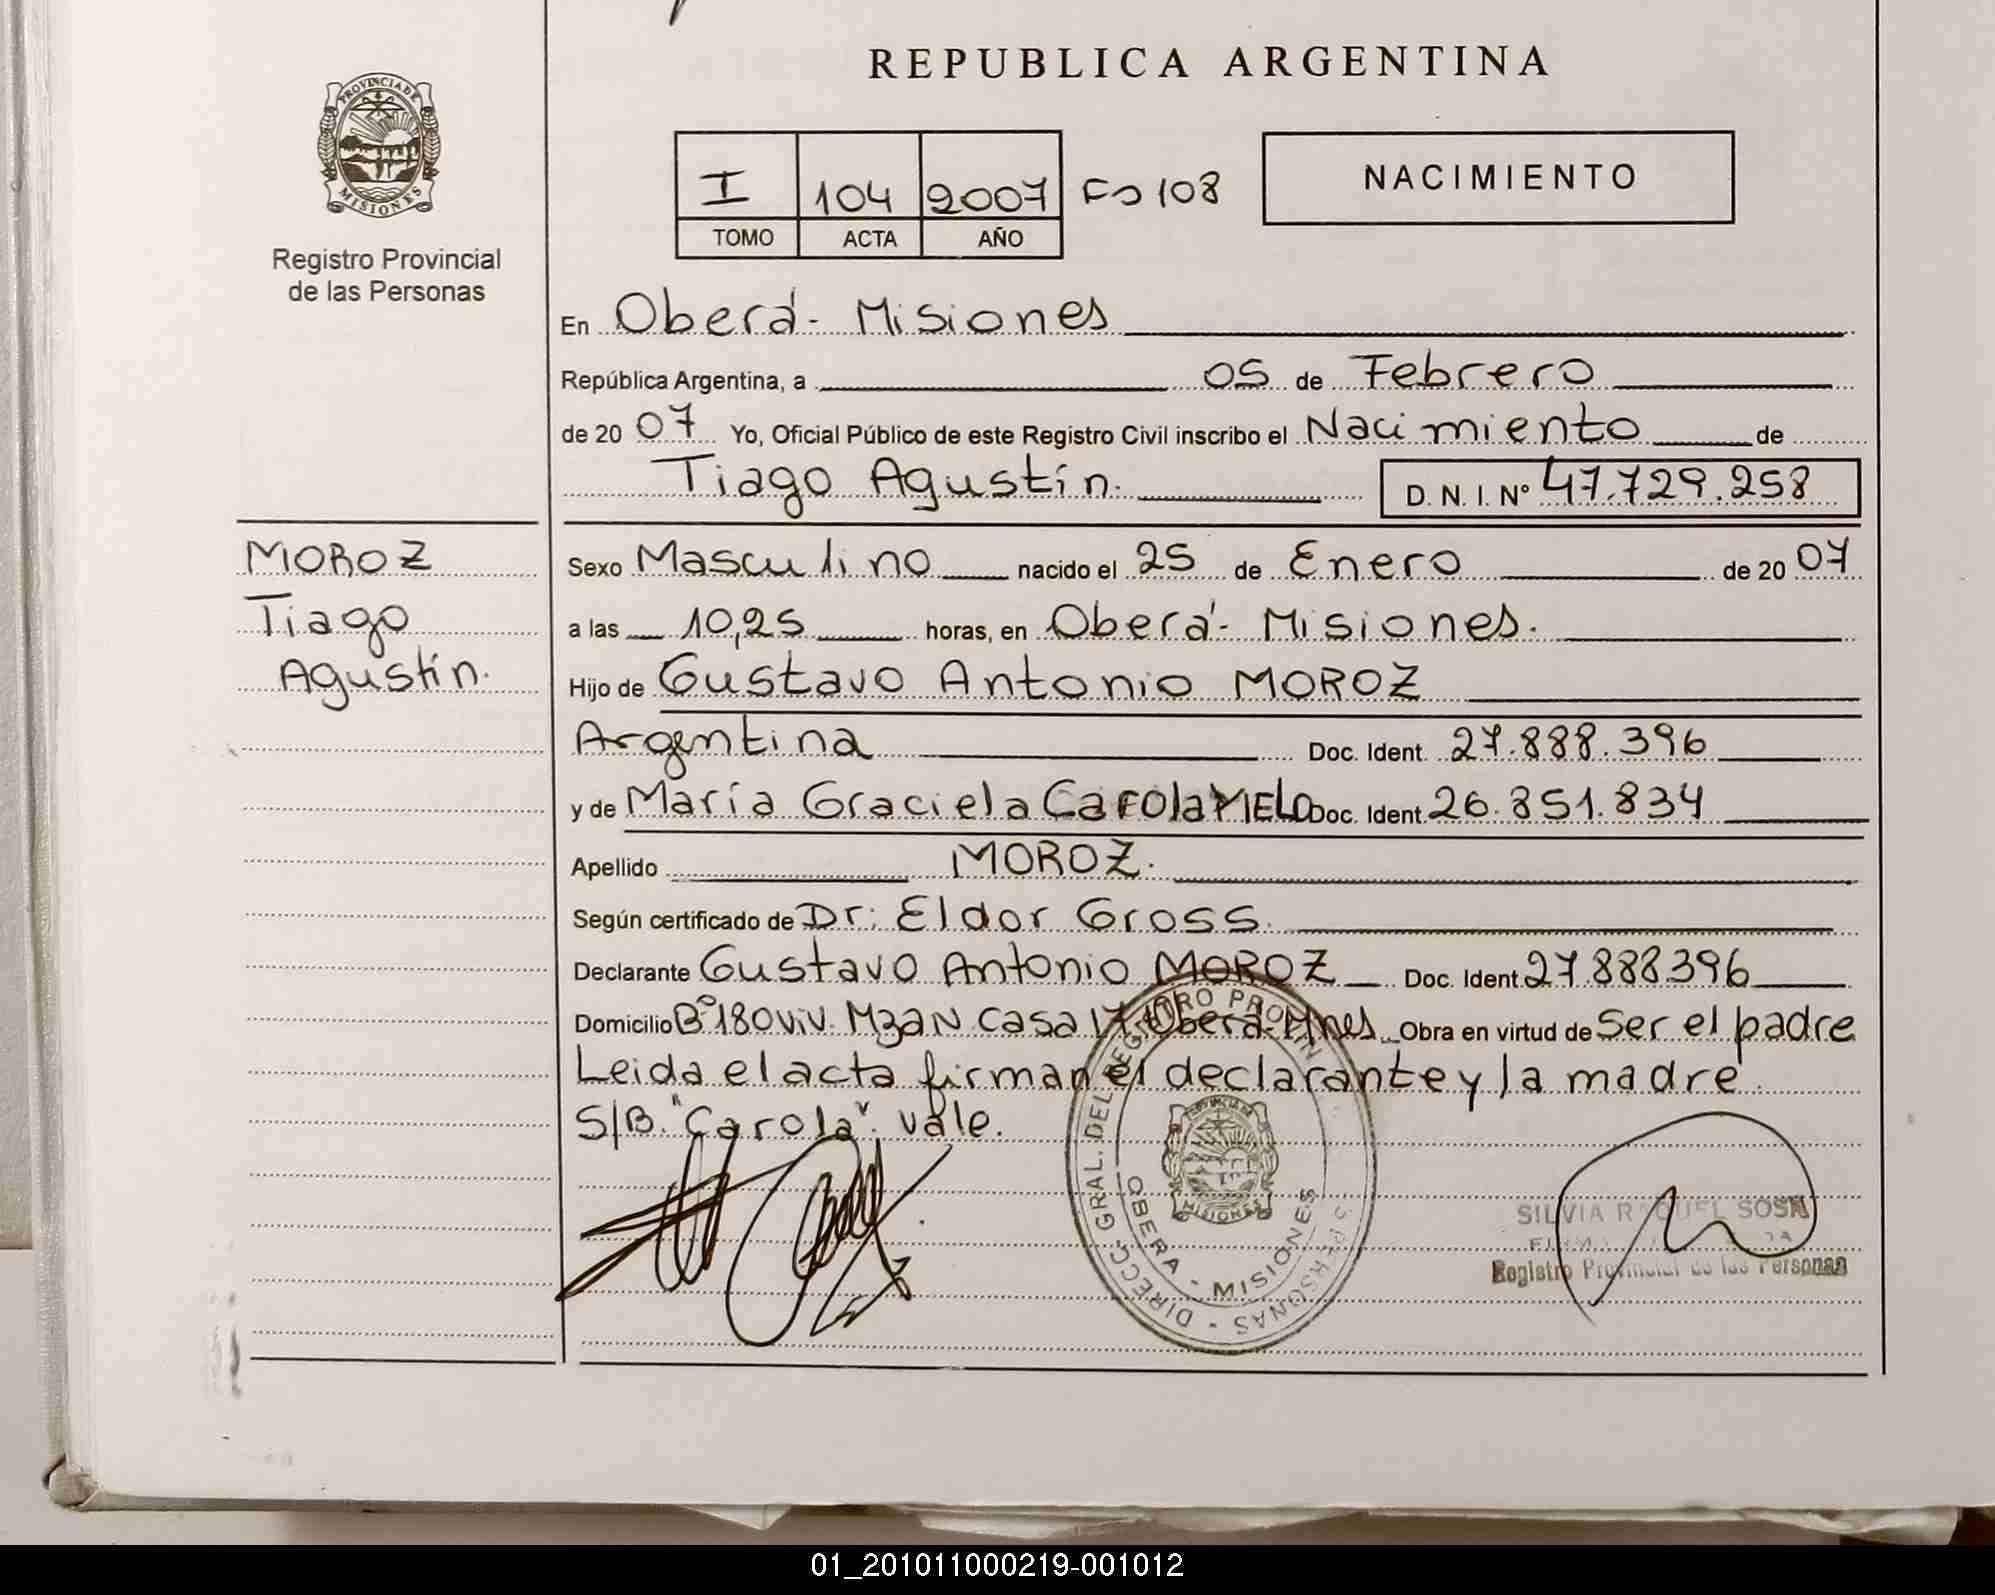 REPUBLICA ARGENTINA
PROVINCIA DE
MISIONES
Registro Provincial
de las Personas
I 104 2007 Fo 108
TOMO ACTA AÑO
NACIMIENTO
En Oberá - Misiones
República Argentina, a 05 de Febrero
de 2007 Yo, Oficial Público de este Registro Civil inscribo el Nacimiento de
Tiago Agustín. D. N. I. Nº 47.729.258
MOROZ
Tiago
Agustín.
Sexo Masculino nacido el 25 de Enero de 2007
a las 10,25 horas, en Oberá - Misiones.
Hijo de Gustavo Antonio MOROZ
Argentina Doc. Ident. 27.888.396
y de María Graciela Carola MELO Doc. Ident. 26.851.834
Apellido MOROZ.
Según certificado de Dr: Eldor Gross.
Declarante Gustavo Antonio MOROZ Doc. Ident. 27.888.396
Domicilio Bº 180 viv. Mza N casa 17 Oberá-Mnes Obra en virtud de ser el padre
Leida el acta firman el declarante y la madre.
S/B. "Carola". vale.
DIRECC. GRAL. DEL REGISTRO PROVIN PERSONAS
PROVINCIA DE
MISIONES
OBERA - MISIONES
SILVIA RAQUEL SOSA
Registro Provincial de las Personas
01_201011000219-001012